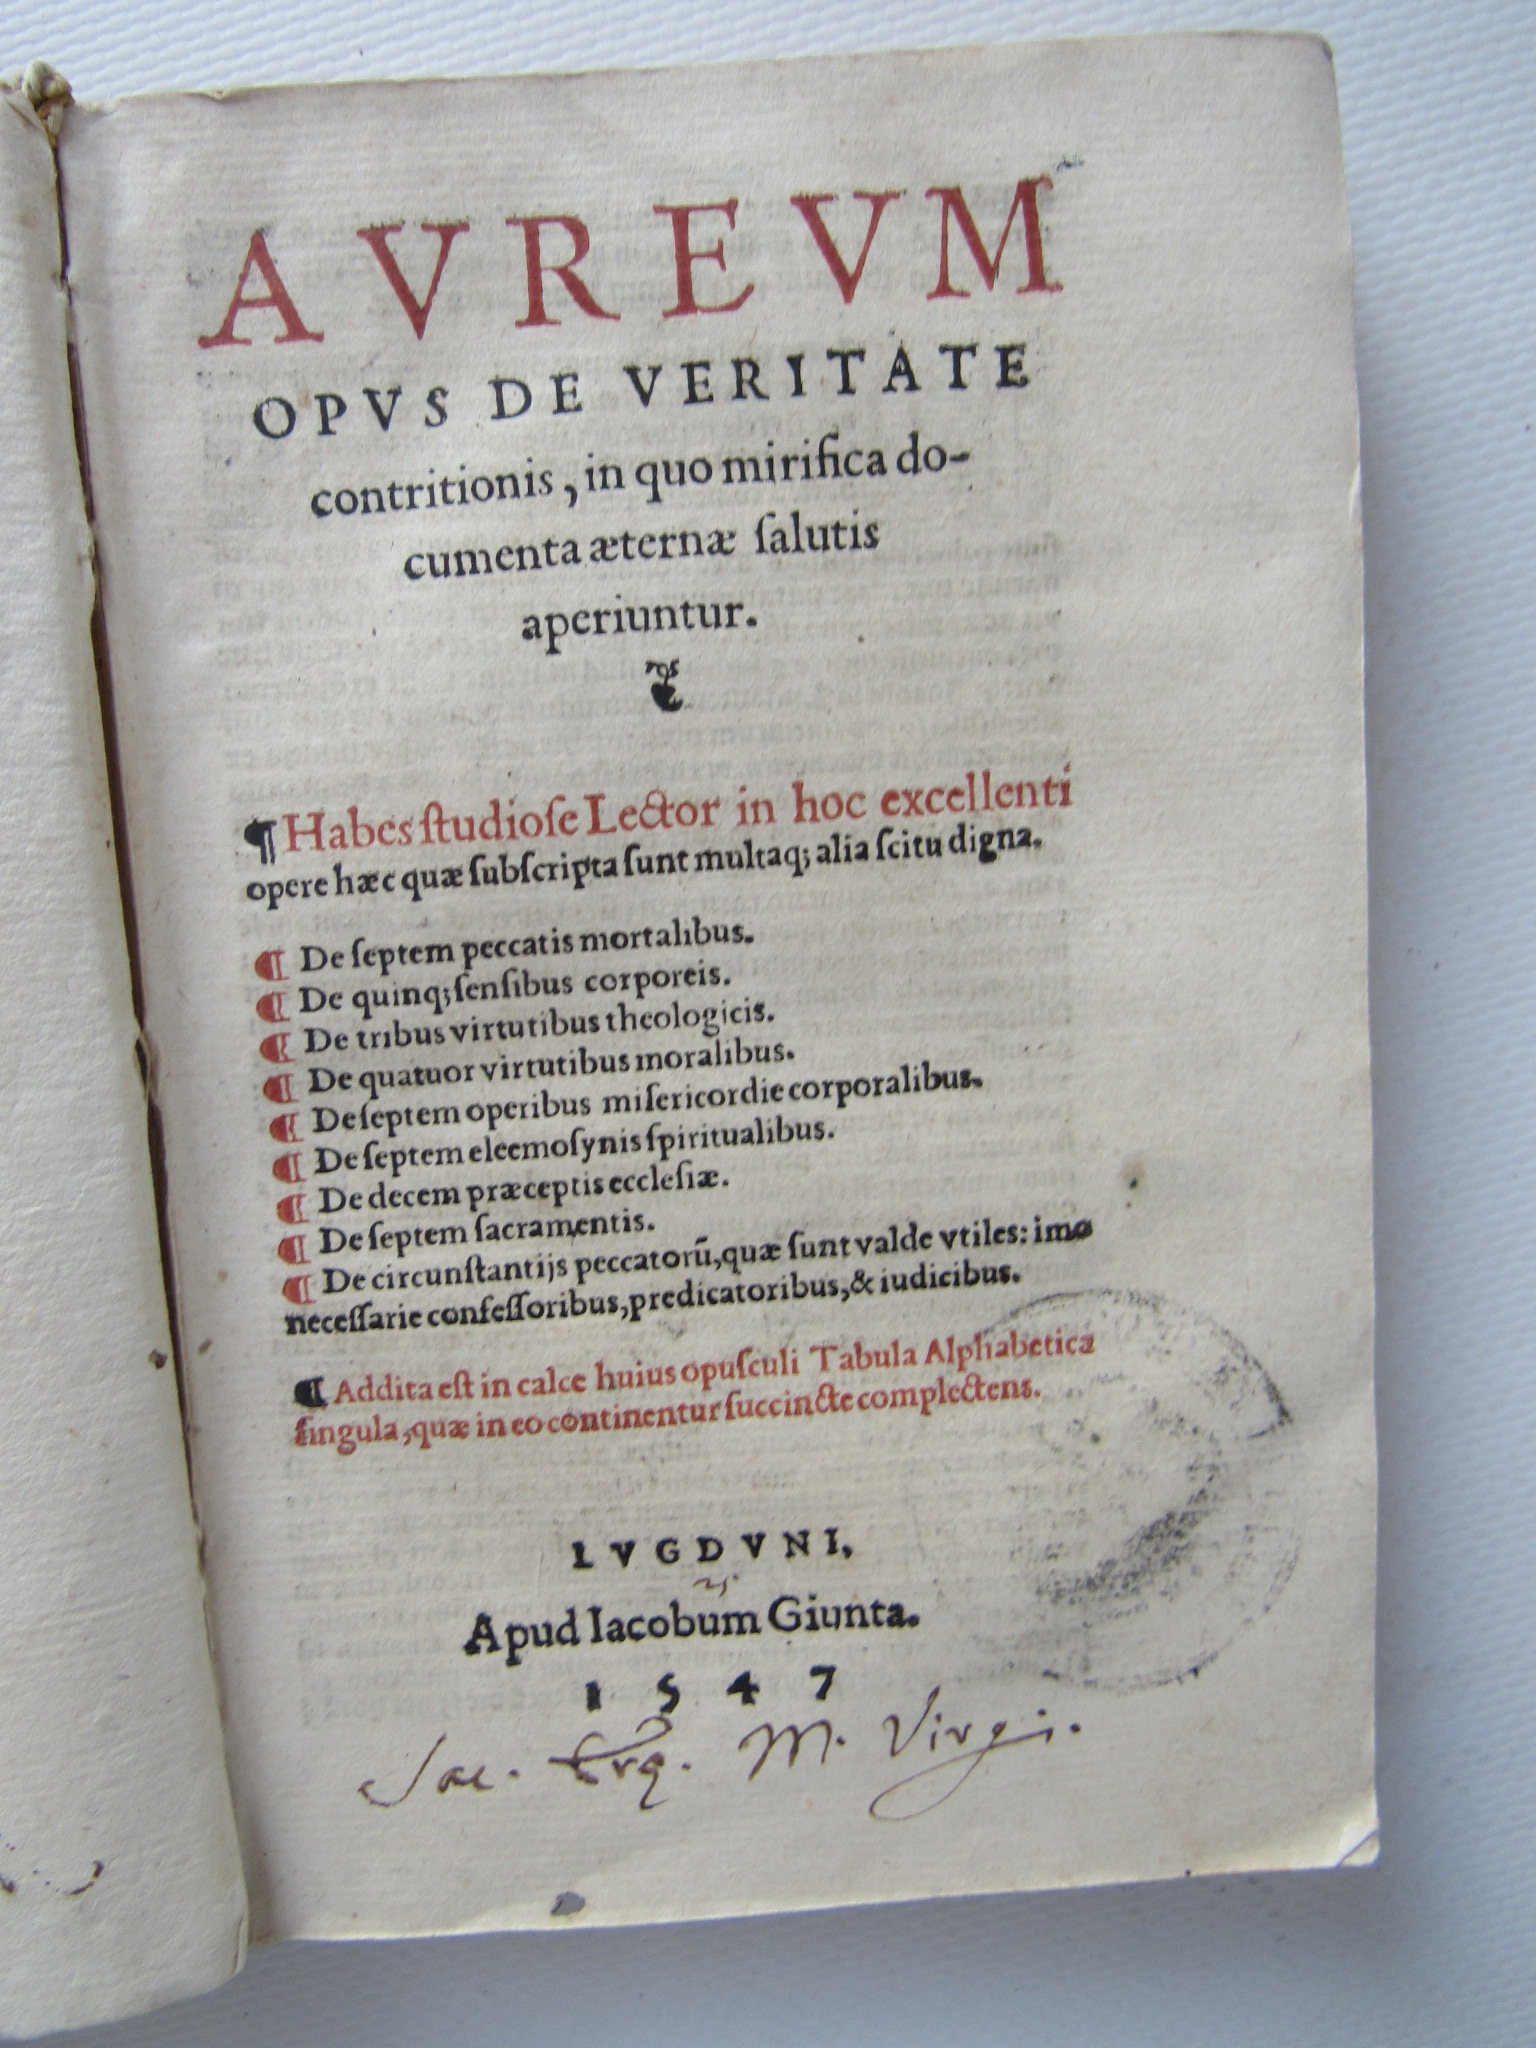 AVREVM
OPVS DE VERITATE
contritionis, in quo mirifica do-
cumenta æternæ ſalutis
aperiuntur.
¶ Habes ſtudioſe Lector in hoc excellenti
opere hæc quæ ſubſcripta ſunt multaq; alia ſcitu digna.
¶ De ſeptem peccatis mortalibus.
¶ De quinq; ſenſibus corporeis.
¶ De tribus virtutibus theologicis.
¶ De quatuor virtutibus moralibus.
¶ De ſeptem operibus miſericordie corporalibus.
¶ De ſeptem eleemoſynis ſpiritualibus.
¶ De decem præceptis eccleſiæ.
¶ De ſeptem ſacramentis.
¶ De circunſtantijs peccatorū, quæ ſunt valde vtiles: imo
neceſſarie confeſſoribus, predicatoribus, & iudicibus.
¶ Addita eſt in calce huius opuſculi Tabula Alphabetica
ſingula, quæ in eo continentur ſuccincte complectens.
LVGDVNI,
Apud Iacobum Giunta.
1547
M. Virgi.